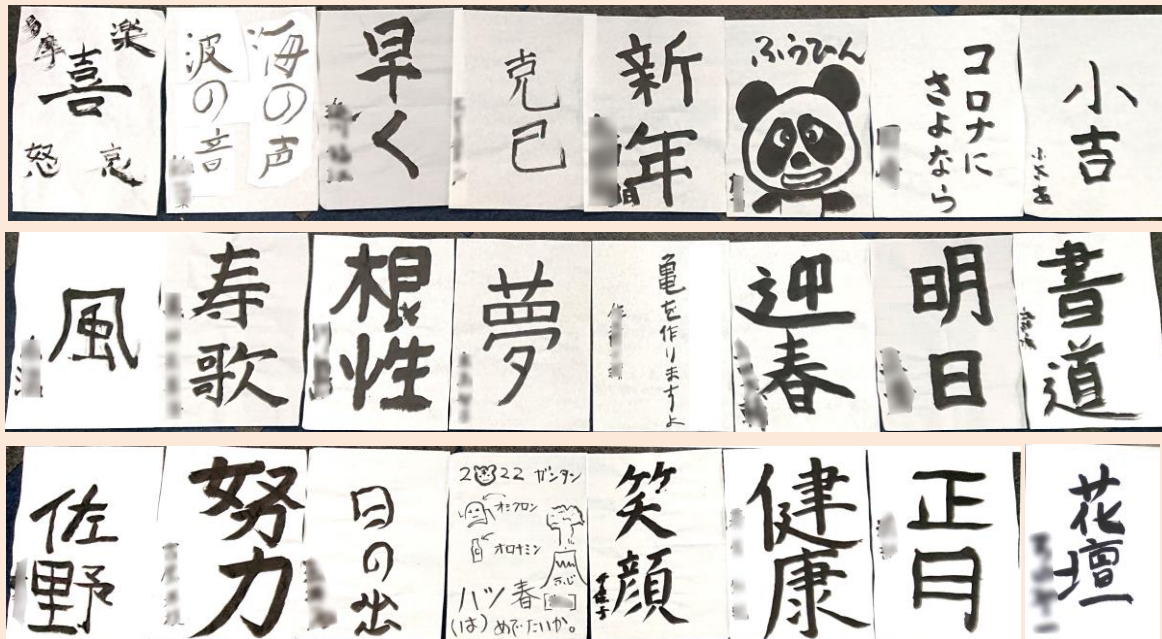 多摩
喜
怒
哀
楽
海の声
波の音
早く
克己
新年
ふうひん
コロナに
さよなら
小吉
風
寿歌
根性
夢
亀を作りますよ
迎春
明日
書道
佐野
努力
日の出
2022 ガンタン
オミフロン
オロナミン
ふじ
ハツ春
(は)めでたいか。
笑顔
健康
正月
花壇